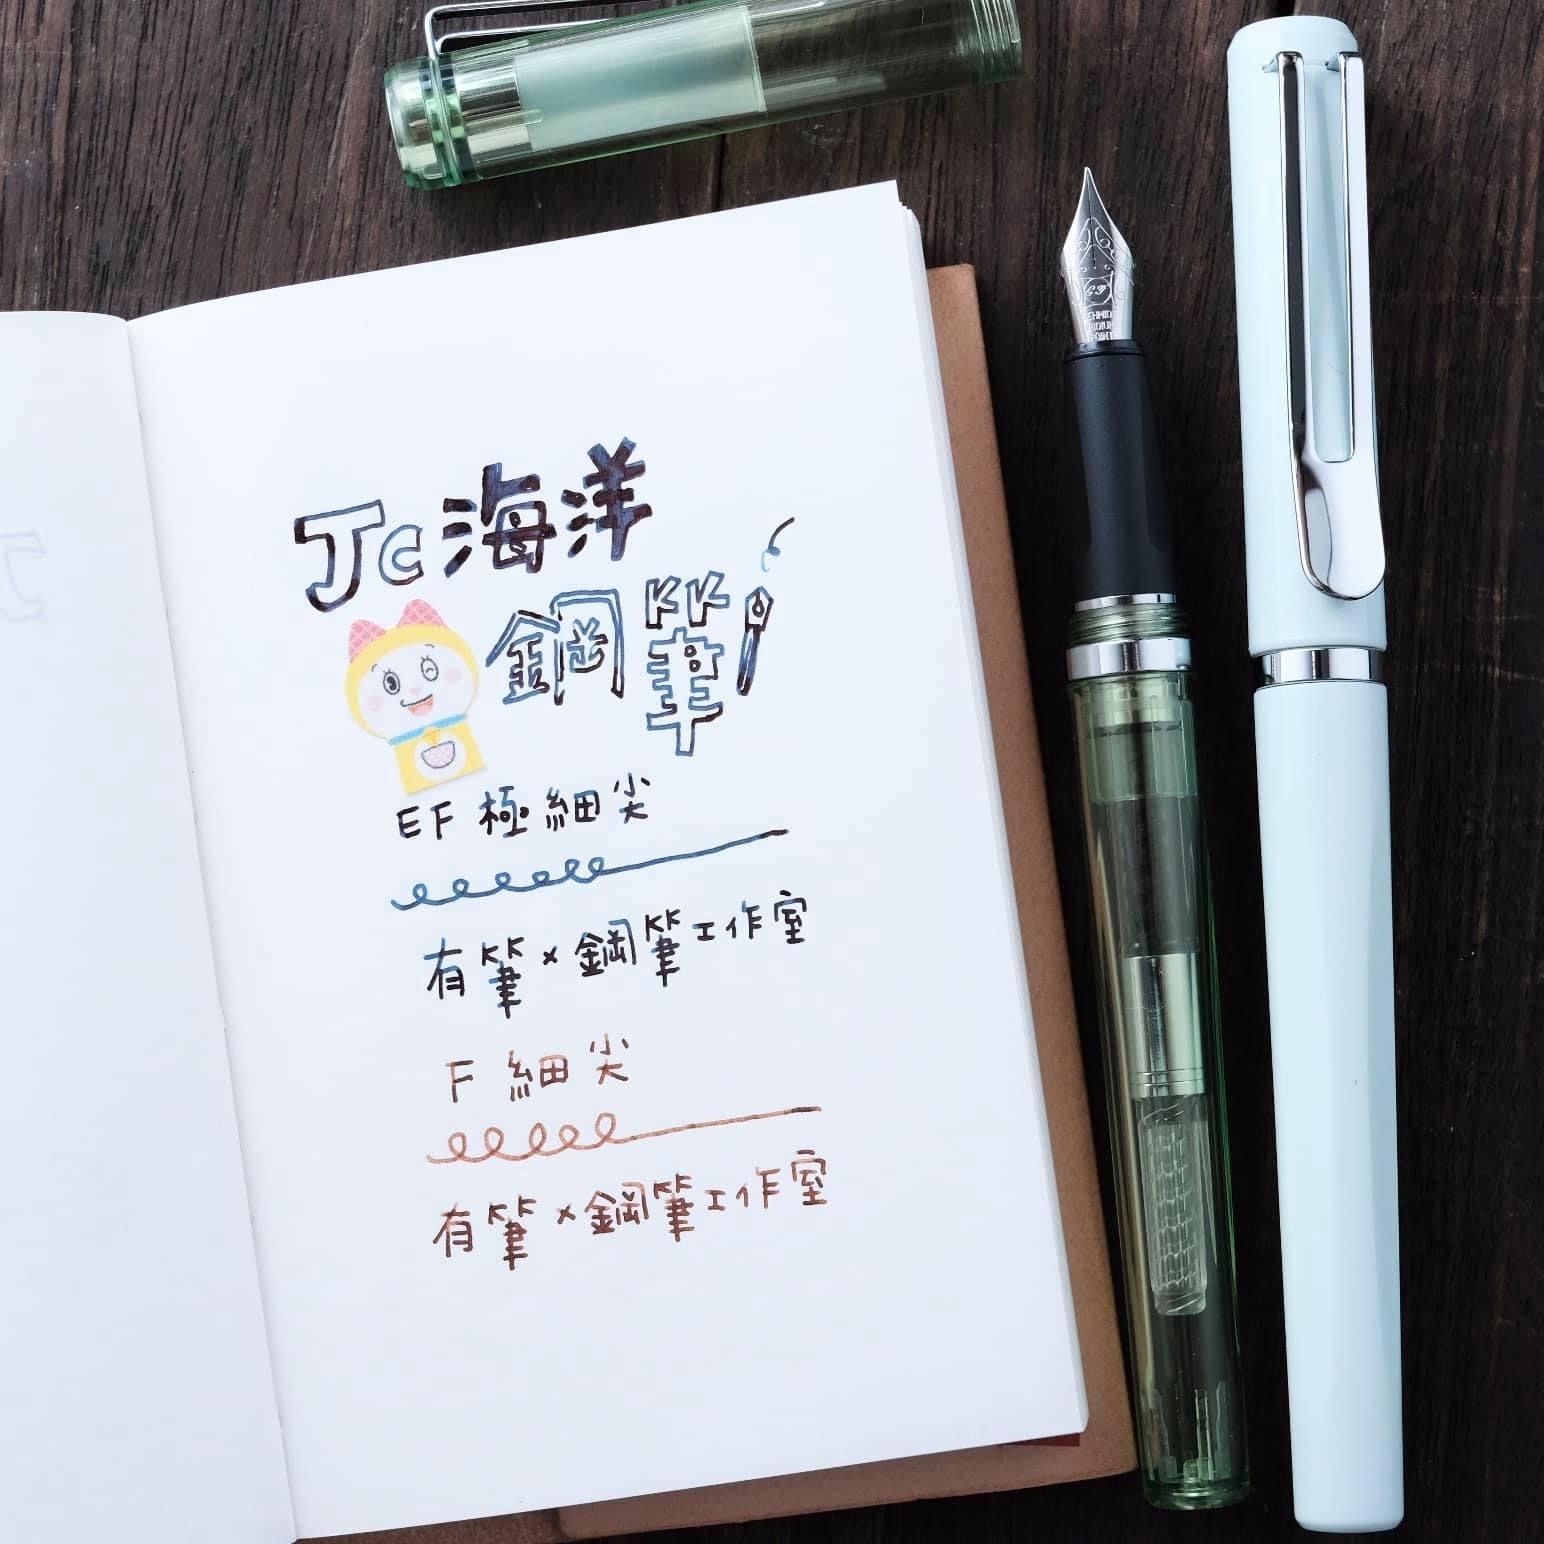 Jc海洋
鋼筆
EF 極細尖
有筆×鋼筆工作室
F 細尖
有筆×鋼筆工作室